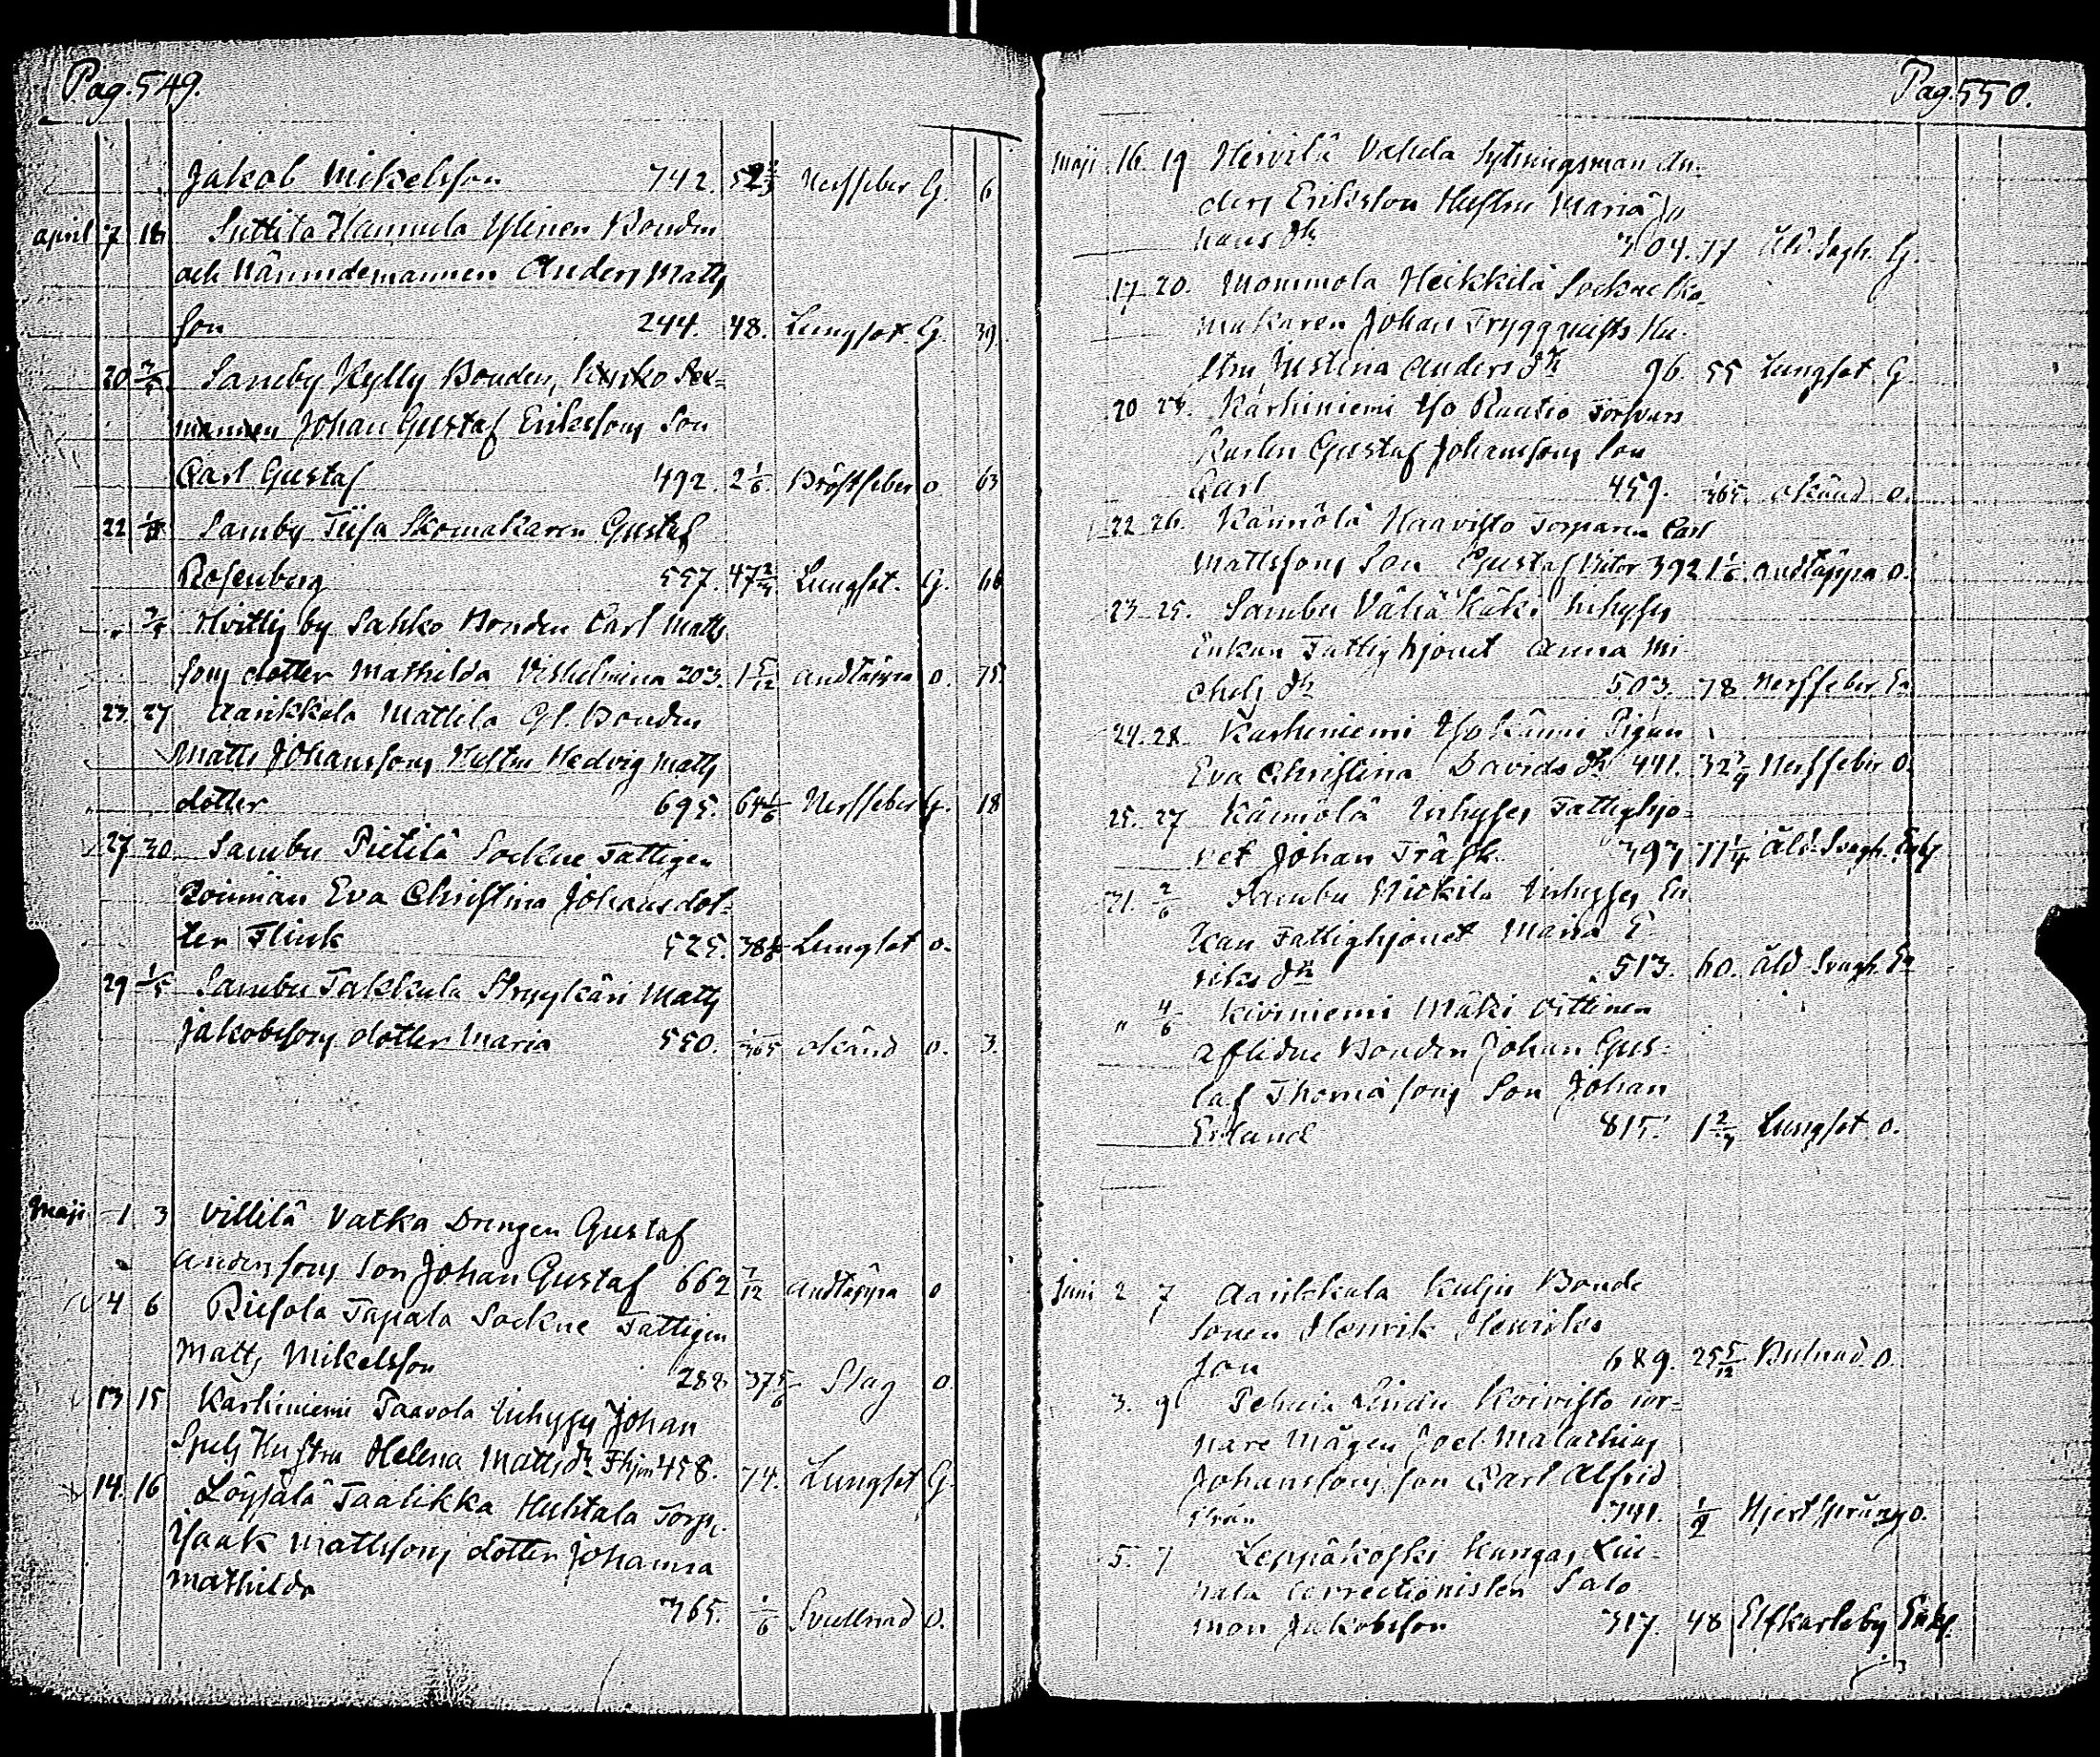 Pag. 549.
Jakob Mikelsson 742. 52 2/3 Nerffeber G. 6
april 7 18 Suttila Hannula Ylinen Bonden
och Nämndemannen Anders Matts
son 244. 48. Lungsot. G. 39
20 2/5 Sambu Kylly Bonden, Kyrko Sex-
mannen Johan Gustaf Erikssons Son
Carl Gustaf 492. 2 1/6 Bröstfeber o 63
22 1/5 Sambu Tiisa Skomakaren Gustaf
Rosenberg 557. 47 2/3 Lungsot. G. 66
" 2/5 Hvittis by Sahko Bonden Carl Matts
sons dotter Mathilda Vilhelmina 203. 1 5/12 andtäppa o. 75
23. 27 Aarikkala Mattila Gl. Bonden
Matts Johanssons Hustru Hedvig Matts
dotter 695. 64 1/6 Nerffeber G. 18
27 30 Sambu Pietilä Sockne Fattigen
Qvinnan Eva Christina Johansdot-
ter Flink 525. 38 Lungsot o.
29 1/5 Sambu Takkula Strykäri Matts
Jakobssons dotter Maria 550. 1/365 okänd o. 3.
Maji 1 3 Villilä Vatka Drengen Gustaf
Anderssons Son Johan Gustaf 662 7/12 andtäppa o
4 6 Riesola Tapala Sockne Fattigen
Matts Mikelsson 282 37 5/6 Slag o.
13 15 Karhiniemi Taavola Inhyses Johan
Spels Hustru Helena Mattsdr Fhjon 458. 74. Lungsot G.
14. 16 Löysälä Taalikka Huhtala Torp.
Isaak Mattssons dotter Johanna
Mathilda
365. 1/6 Svullnad o.
Pag. 550.
Maji 16. 19 Heivilä Vahula Sytningsman An-
ders Eriksson Hustru Maria Jo
hansdr 304. 77 Åld. Svgh. G.
17 20. Mommola Heikkilä Socknesko
makaren Johan Tryggqvists Hu-
stru Justina Andersdr 96. 55 Lungsot G
20 23. Karhiniemi Iso Rautio Torpars
Karlen Gustaf Johanssons Son
Carl 459. 1/365. okänd o.
22 26. Kännölä Haavisto Torparen Carl
Mattssons Son Gustaf Vitor 392 1 1/6. andtäppa o.
23 25. Sambu Vähä Käki Inhyses
Enkan Fattighjonet Anna Mi-
chelsdr 503. 78 Nerffeber En
24. 28. Karhiniemi Iso Känni Pigan
Eva Christina Davidsdr 441. 32 3/4 Nerffeber O.
25. 27 Kännölä Inhyses Fattighjo-
net Johan Träsk 393 71 1/4 Åld. Svagh. Enkl
31. 2/6 Sambu Nickila Inhyses En
kan Fattighjonet Maria E-
riksdr 513. 60. åld Svagh. En
" 4/6 Kiviniemi Mäki Vittinen
aflidne Bonden Johan Gus-
taf Thomassons Son Johan
Erland 815. 1 2/3 Lungsot o.
Juni 2 7 Aarikkala Kulju Bonde
sonen Henrik Henriks
son 689. 25 5/12 Bulnad o.
3. 9 Koivisto tor-
pare Mågen Joel Malachias
Johanssons son Carl Alfrid
från 341. 1/2 Hjertsprång o.
5. 7 Leppäkoski Kangas Lin-
nala Correctionisten Salo
mon Jakobsson 317. 48 Elfkarleby Enkl.